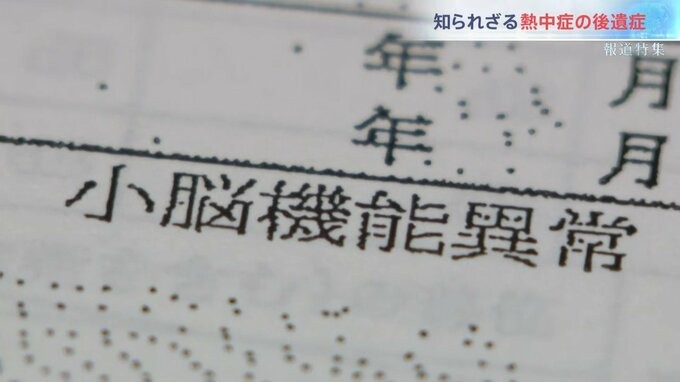 知られざる熱中症の後遺症
報道特集
年 月
年 月
小脳機能異常